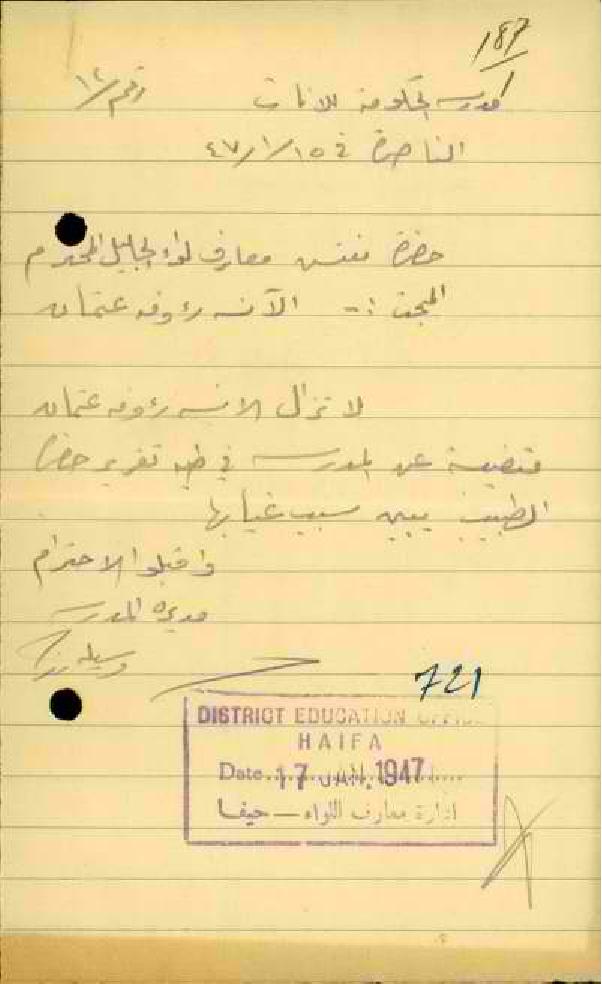 187
مدرسة الحكومة للاناث رقم ١٤/
الناصرة في ١٥/١/٤٧
حضرة مفتش معارف لواء الجليل المحترم
المبحث :- الآنسه رؤوفه عثمان
لا تزال الانسه رؤوفه عثمان
عن المدرسه في طيه تقرير حضرة
الطبيب يبين سبب غيابها
واقبلوا الاحترام
مديرة المدرسه
721
DISTRICT EDUCATION OFFICE
HAIFA
Date 17 JAN. 1947
ادارة معارف اللواء — حيفا